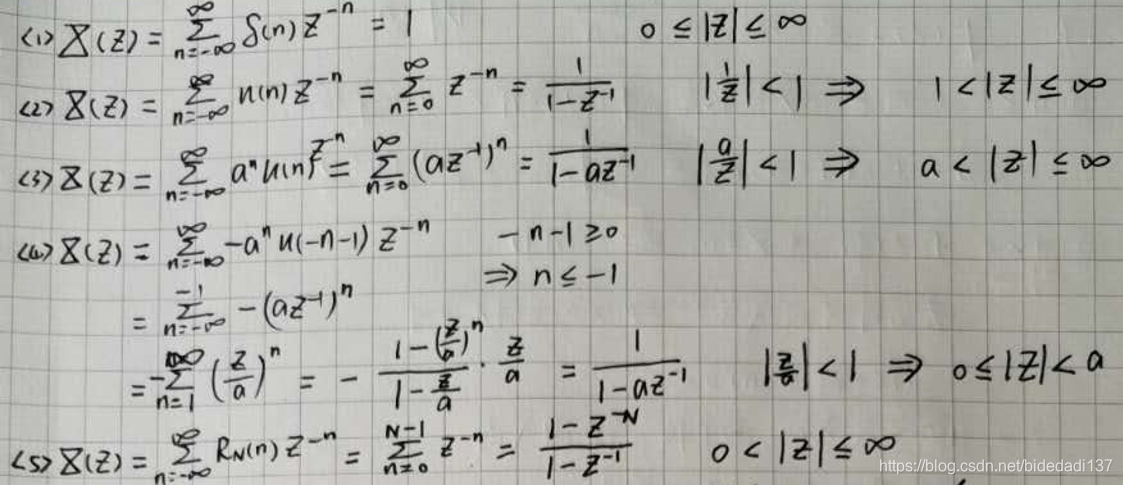 <1> X(Z) = ∑_{n=-∞}^{∞} δ(n) Z^{-n} = 1    0 ≤ |Z| ≤ ∞
<2> X(Z) = ∑_{n=-∞}^{∞} u(n) Z^{-n} = ∑_{n=0}^{∞} Z^{-n} = \frac{1}{1-Z^{-1}}    |\frac{1}{Z}| < 1 ⇒ 1 < |Z| ≤ ∞
<3> X(Z) = ∑_{n=-∞}^{∞} a^n u(n) Z^{-n} = ∑_{n=0}^{∞} (aZ^{-1})^n = \frac{1}{1-aZ^{-1}}    |\frac{a}{Z}| < 1 ⇒ a < |Z| ≤ ∞
<4> X(Z) = ∑_{n=-∞}^{∞} -a^n u(-n-1) Z^{-n}    -n-1 ≥ 0
⇒ n ≤ -1
= ∑_{n=-∞}^{-1} -(aZ^{-1})^n
= -∑_{n=1}^{∞} (\frac{Z}{a})^n = - \frac{1-(\frac{Z}{a})^n}{1-\frac{Z}{a}} · \frac{Z}{a} = \frac{1}{1-aZ^{-1}}    |\frac{Z}{a}| < 1 ⇒ 0 ≤ |Z| < a
<5> X(Z) = ∑_{n=-∞}^{∞} R_N(n) Z^{-n} = ∑_{n=0}^{N-1} Z^{-n} = \frac{1-Z^{-N}}{1-Z^{-1}}    0 < |Z| ≤ ∞
https://blog.csdn.net/bidedadi137